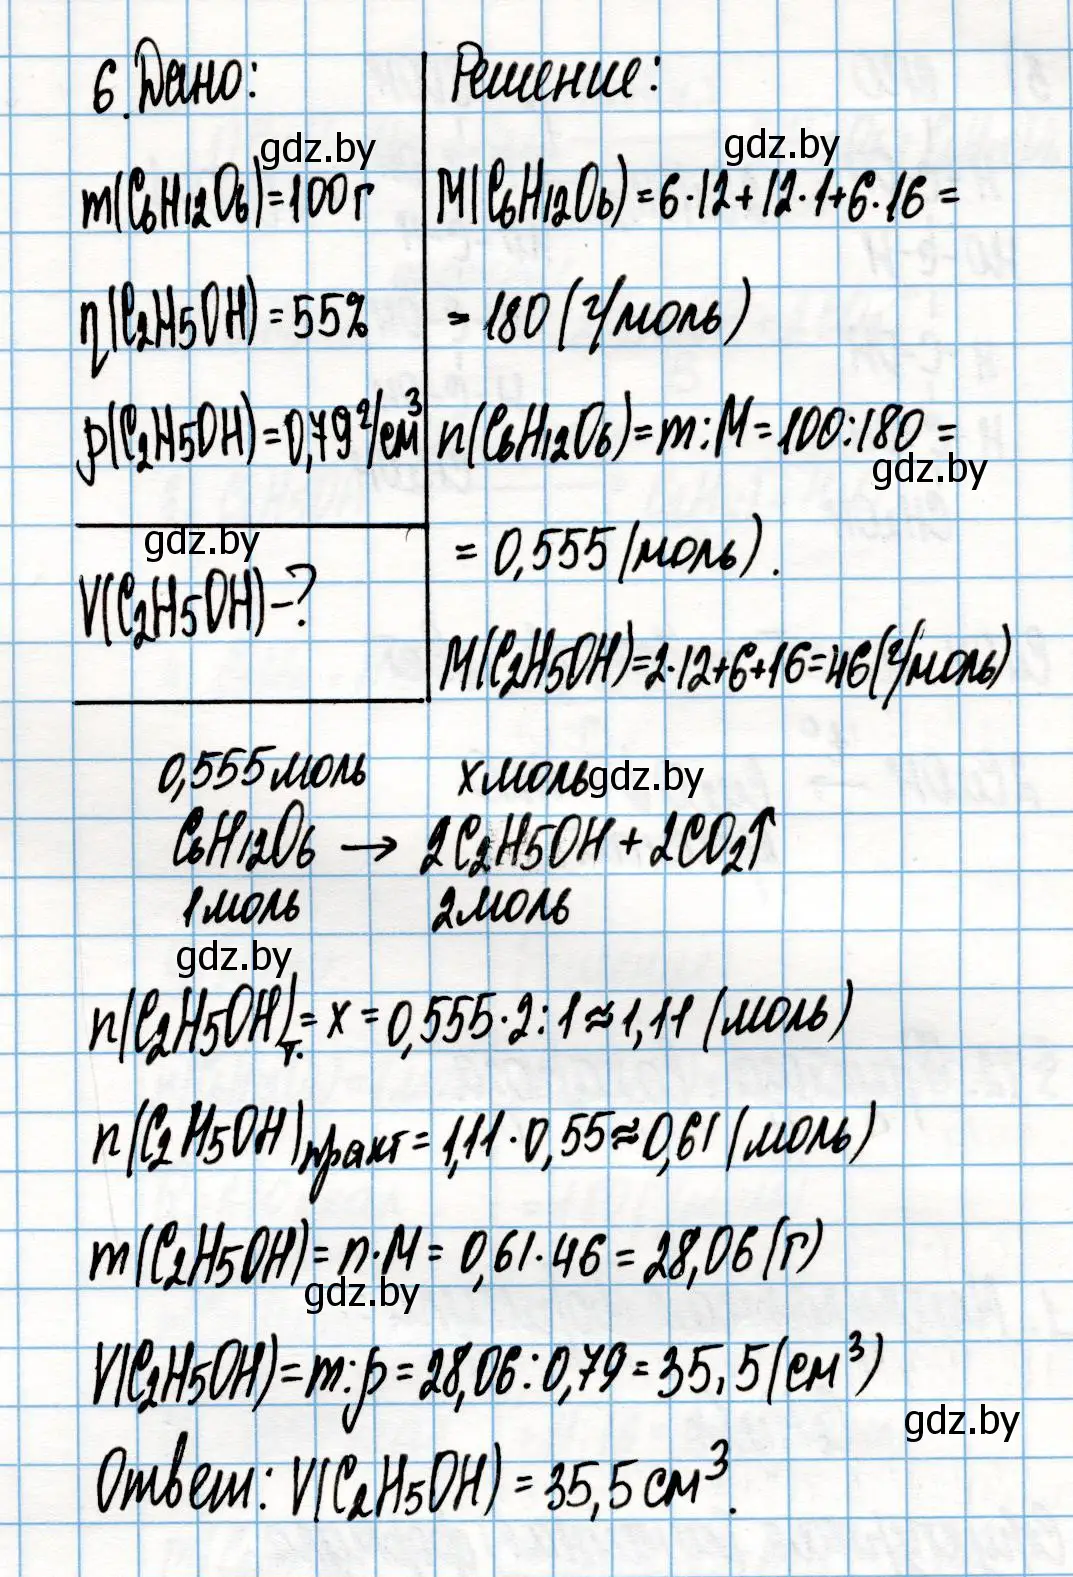 6. Дано:
gdz.by
m(C6H12O6)=100г
η(C2H5OH)=55%
ρ(C2H5OH)=0,79г/см³
gdz.by
V(C2H5OH)-?
Решение:
gdz.by
M(C6H12O6)=6·12+12·1+6·16=
=180(г/моль)
n(C6H12O6)=m:M=100:180=
gdz.by
=0,555(моль).
M(C2H5OH)=2·12+6+16=46(г/моль)
0,555моль xмоль gdz.by
C6H12O6 → 2C2H5OH+2CO2↑
1моль 2моль
gdz.by
n(C2H5OH)т.=x=0,555·2:1≈1,11(моль)
n(C2H5OH)практ=1,11·0,55≈0,61(моль)
m(C2H5OH)=n·M=0,61·46=28,06(г)
gdz.by
V(C2H5OH)=m:ρ=28,06:0,79=35,5(см³)
gdz.by
Ответ: V(C2H5OH)=35,5см³.